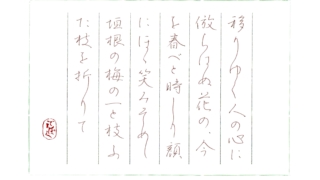 移りゆく人の心に
倣らはぬ花の、今
を春べと時しり顔
にほゝ笑みそめし
垣根の梅の一と枝ふ
た枝を折りて